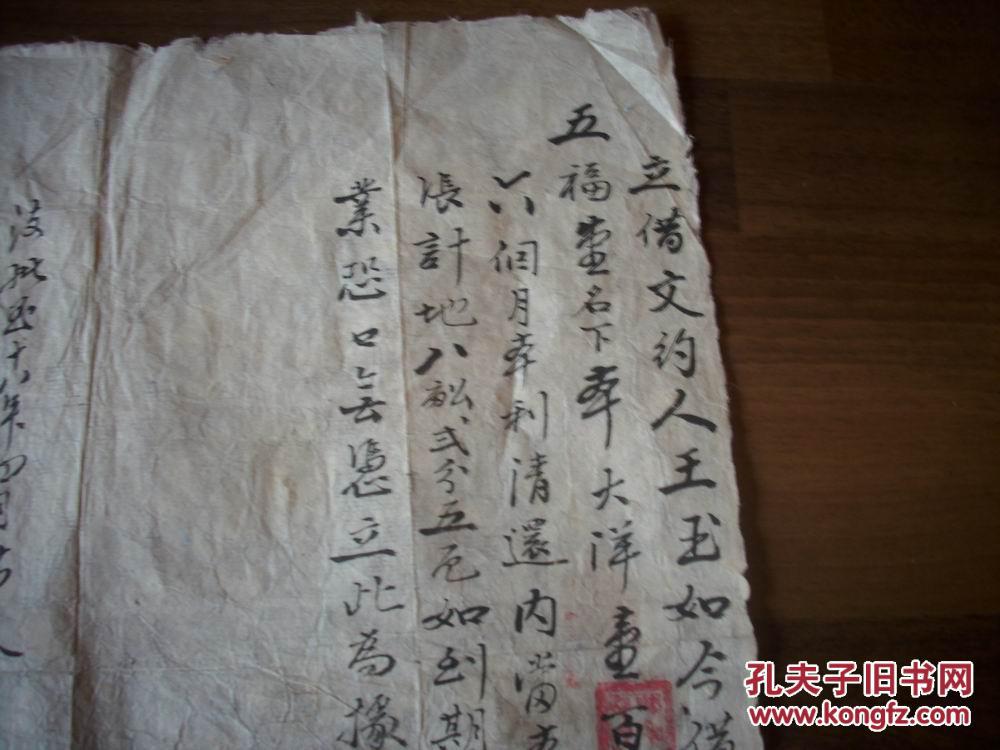 立借文約人王玉如今借
五福堂名下本大洋壹百
六個月本利清還内當
張計地八畝弍分五厘如到期
業恐口無憑立此為據
没批至十八年四月
孔夫子旧书网
www.kongfz.com